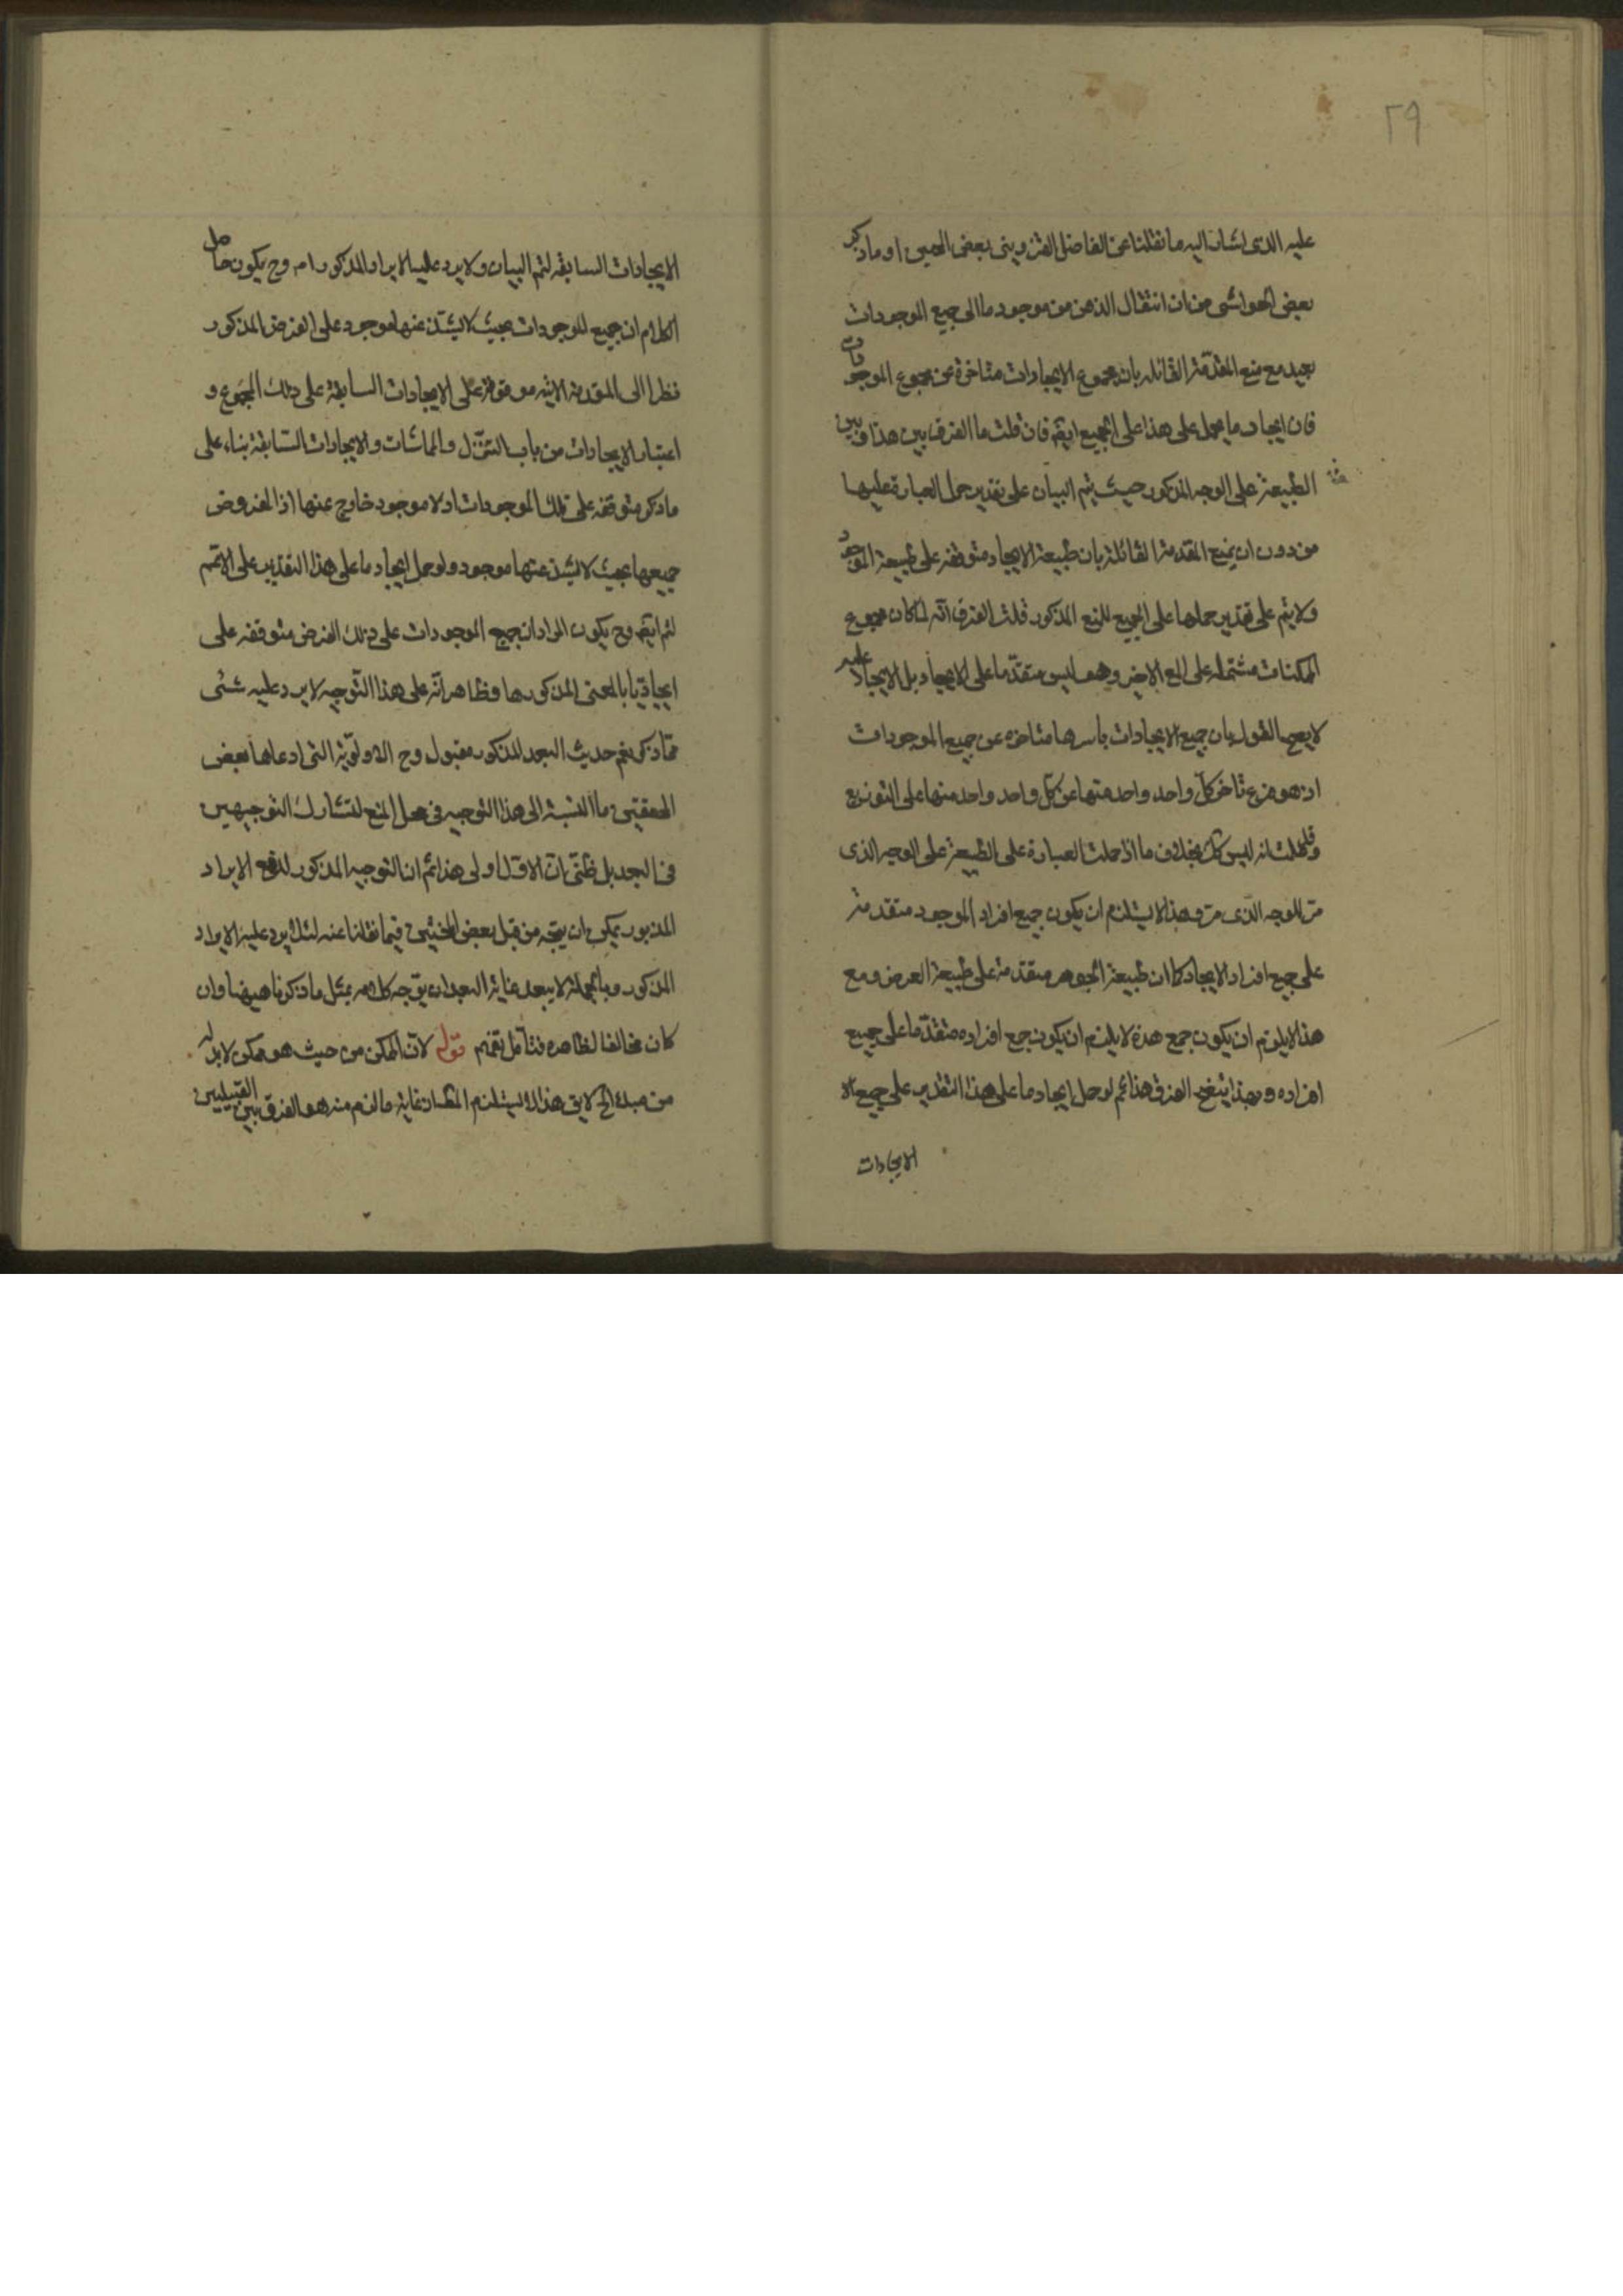 ٢٩
عليه الذى اشار اليه ما نقلنا عن الفاضل القزوينى بعض المحشين او ما ذكر
بعض الحواشى من ان انتقال الذهن من موجود ما الى جميع الموجودات
بعيد مع منع المقدمة القائله بان مجموع الايجادات متاخرة عن مجموع الموجودات
فان ايجاد ما يحمل على هذا على الجميع ايضا فان قلت ما الفرق بين هذا وبين
الطبيعة على الوجه المذكور حيث يتم البيان على تقدير حمل العبارة عليها
من دون ان يمنع المقدمة القائلة بان طبيعة الايجاد متوقفه على طبيعة الموجود
ولا يتم على تقدير حملها على الجميع للمنع المذكور قلت الفرق انه لما كان مجموع
الممكنات مشتمله على الاخير وهو ليس متقدما على الايجاد بل الايجاد عليه
لا يصح القول بان جميع الايجادات باسرها متاخره عن جميع الموجودات
اذ هو فرع تاخر كل واحد واحد منها عن كل واحد واحد منها على التوزيع
وقد علمت انه ليس كك بخلاف ما اذا حملت العبارة على الطبيعة على الوجه الذى
مر الوجه الذى مر وهذا لا يستلزم ان يكون جميع افراد الموجود متقدمة
على جميع افراد الايجاد كما ان طبيعة الجوهر متقدمة على طبيعة العرض ومع
هذا لا يلزم ان يكون جمع هذه لا يلزم ان يكون جمع افراده متقدما على جميع
افراده وبهذا يتضح الفرق هذا ثم لو حمل ايجاد ما على هذا التقدير على جميع الا
الايجادات
الايجادات السابقه لتم البيان ولا يرد عليه الايراد المذكور وح يكون حاصل
الكلام ان جميع الموجودات بحيث لا يشذ عنها موجود على الفرض المذكور
نظرا الى المقدمة الاتيه موقوفة على الايجادات السابقة على ذلك المجموع و
اعتبار الايجادات من باب التنزل والمماشات والايجادات السابقة بناء على
ما ذكر متوقفه على تلك الموجودات اذ لا موجود خارج عنها اذ المفروض
جميعها بحيث لا يشذ عنها موجود ولو حمل ايجاد ما على هذا التقدير على الاعم
لتم ايضا وح يكون المراد ان جميع الموجودات على ذلك الفرض متوقفه على
ايجاد ما بالمعنى المذكور هنا وظاهر انه على هذا التوجيه لا يرد عليه شئ
مما ذكر نعم حديث البعد المذكور مقبول وح الاولوية التى ادعاها بعض
المحققين ما بالنسبة الى هذا التوجيه فى محل المنع لتشارك التوجيهين
فى البعد بل ظنى ان الاول اولى هذا ثم ان التوجيه المذكور لدفع الايراد
المذبور يمكن ان يتجه من قبل بعض المحشين فيما نقلنا عنه لئلا يرد عليه الايراد
المذكور وبالجملة لا يبعد غاية البعد ان يوجه كلامه بمثل ما ذكرنا هيهنا وان
كان مخالفا لظاهره فتامل تفهم قوله لان الممكن من حيث هو ممكن لا بد له
من مبدء الخ لا يق هذا لا يستلزم المط اذ غاية ما لزم منه هو الفرق بين القبيلين